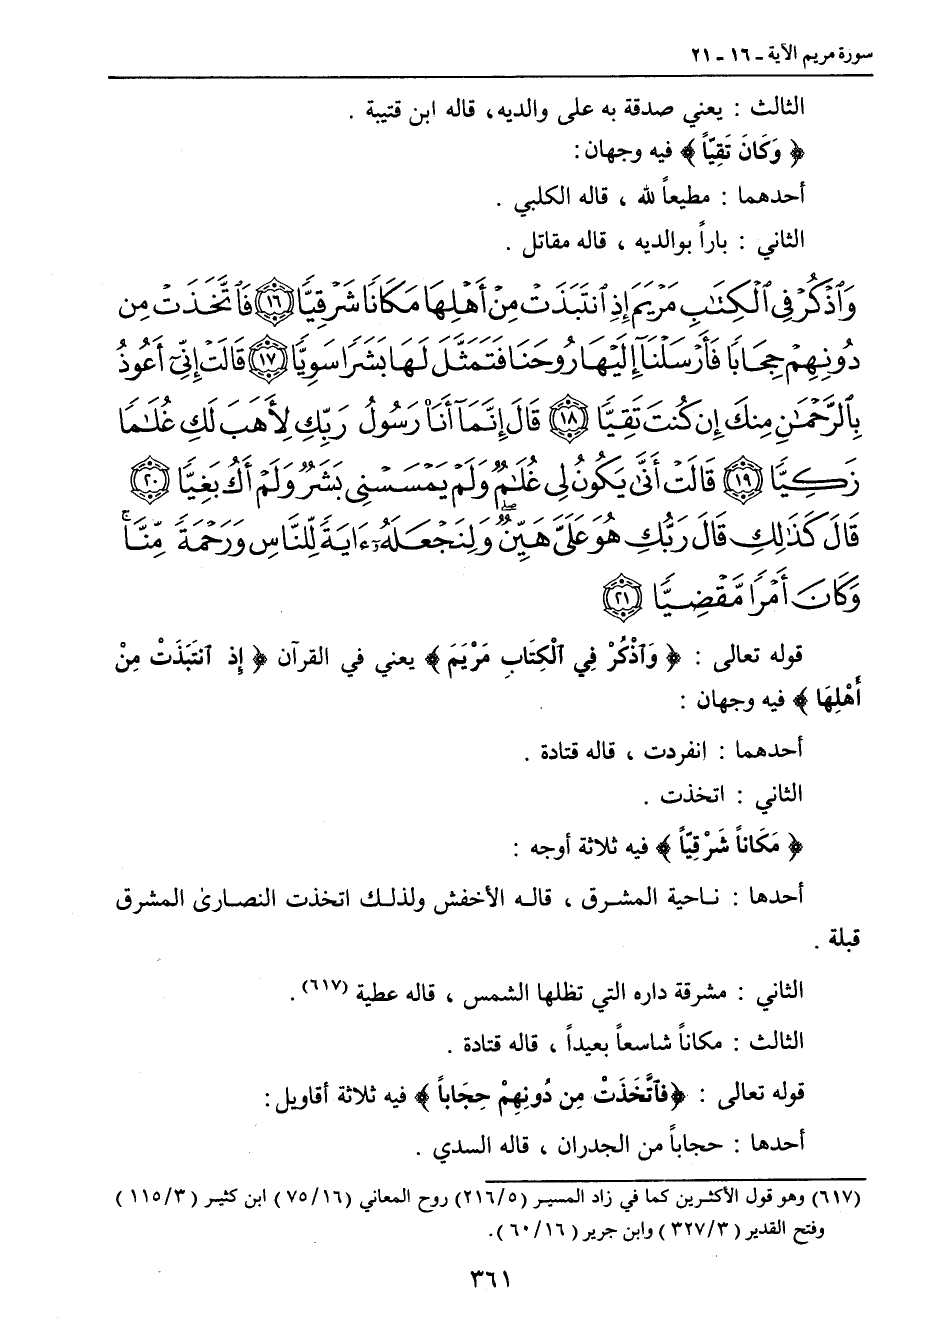 سورة مريم الآية ـ ١٦ ـ ٢١
الثالث : يعني صدقة به على والديه، قاله ابن قتيبة .
﴿ وَكَانَ تَقِيّاً ﴾ فيه وجهان:
أحدهما : مطيعاً لله ، قاله الكلبي .
الثاني : باراً بوالديه ، قاله مقاتل .
وَٱذْكُرْ فِى ٱلْكِتَٰبِ مَرْيَمَ إِذِ ٱنتَبَذَتْ مِنْ أَهْلِهَا مَكَانًا شَرْقِيًّا ١٦ فَٱتَّخَذَتْ مِن
دُونِهِمْ حِجَابًا فَأَرْسَلْنَآ إِلَيْهَا رُوحَنَا فَتَمَثَّلَ لَهَا بَشَرًا سَوِيًّا ١٧ قَالَتْ إِنِّىٓ أَعُوذُ
بِٱلرَّحْمَٰنِ مِنكَ إِن كُنتَ تَقِيًّا ١٨ قَالَ إِنَّمَآ أَنَا۠ رَسُولُ رَبِّكِ لِأَهَبَ لَكِ غُلَٰمًا
زَكِيًّا ١٩ قَالَتْ أَنَّىٰ يَكُونُ لِى غُلَٰمٌ وَلَمْ يَمْسَسْنِى بَشَرٌ وَلَمْ أَكُ بَغِيًّا ٢٠
قَالَ كَذَٰلِكِ قَالَ رَبُّكِ هُوَ عَلَىَّ هَيِّنٌ ۖ وَلِنَجْعَلَهُۥٓ ءَايَةً لِّلنَّاسِ وَرَحْمَةً مِّنَّا ۚ
وَكَانَ أَمْرًا مَّقْضِيًّا ٢١
قوله تعالى : ﴿ وَٱذْكُرْ فِي ٱلْكِتَابِ مَرْيَمَ ﴾ يعني في القرآن ﴿ إِذِ ٱنتَبَذَتْ مِنْ
أَهْلِهَا ﴾ فيه وجهان :
أحدهما : انفردت ، قاله قتادة .
الثاني : اتخذت .
﴿ مَكَاناً شَرْقِيّاً ﴾ فيه ثلاثة أوجه :
أحدها : ناحية المشرق ، قاله الأخفش ولذلك اتخذت النصارىٰ المشرق
قبلة .
الثاني : مشرقة داره التي تظلها الشمس ، قاله عطية (٦١٧) .
الثالث : مكاناً شاسعاً بعيداً ، قاله قتادة .
قوله تعالى : ﴿فَٱتَّخَذَتْ مِن دُونِهِمْ حِجَاباً ﴾ فيه ثلاثة أقاويل:
أحدها : حجاباً من الجدران ، قاله السدي .
(٦١٧) وهو قول الأكثرين كما في زاد المسير (٢١٦/٥) روح المعاني (٧٥/١٦) ابن كثير (١١٥/٣)
وفتح القدير (٣٢٧/٣) وابن جرير (٦٠/١٦).
٣٦١